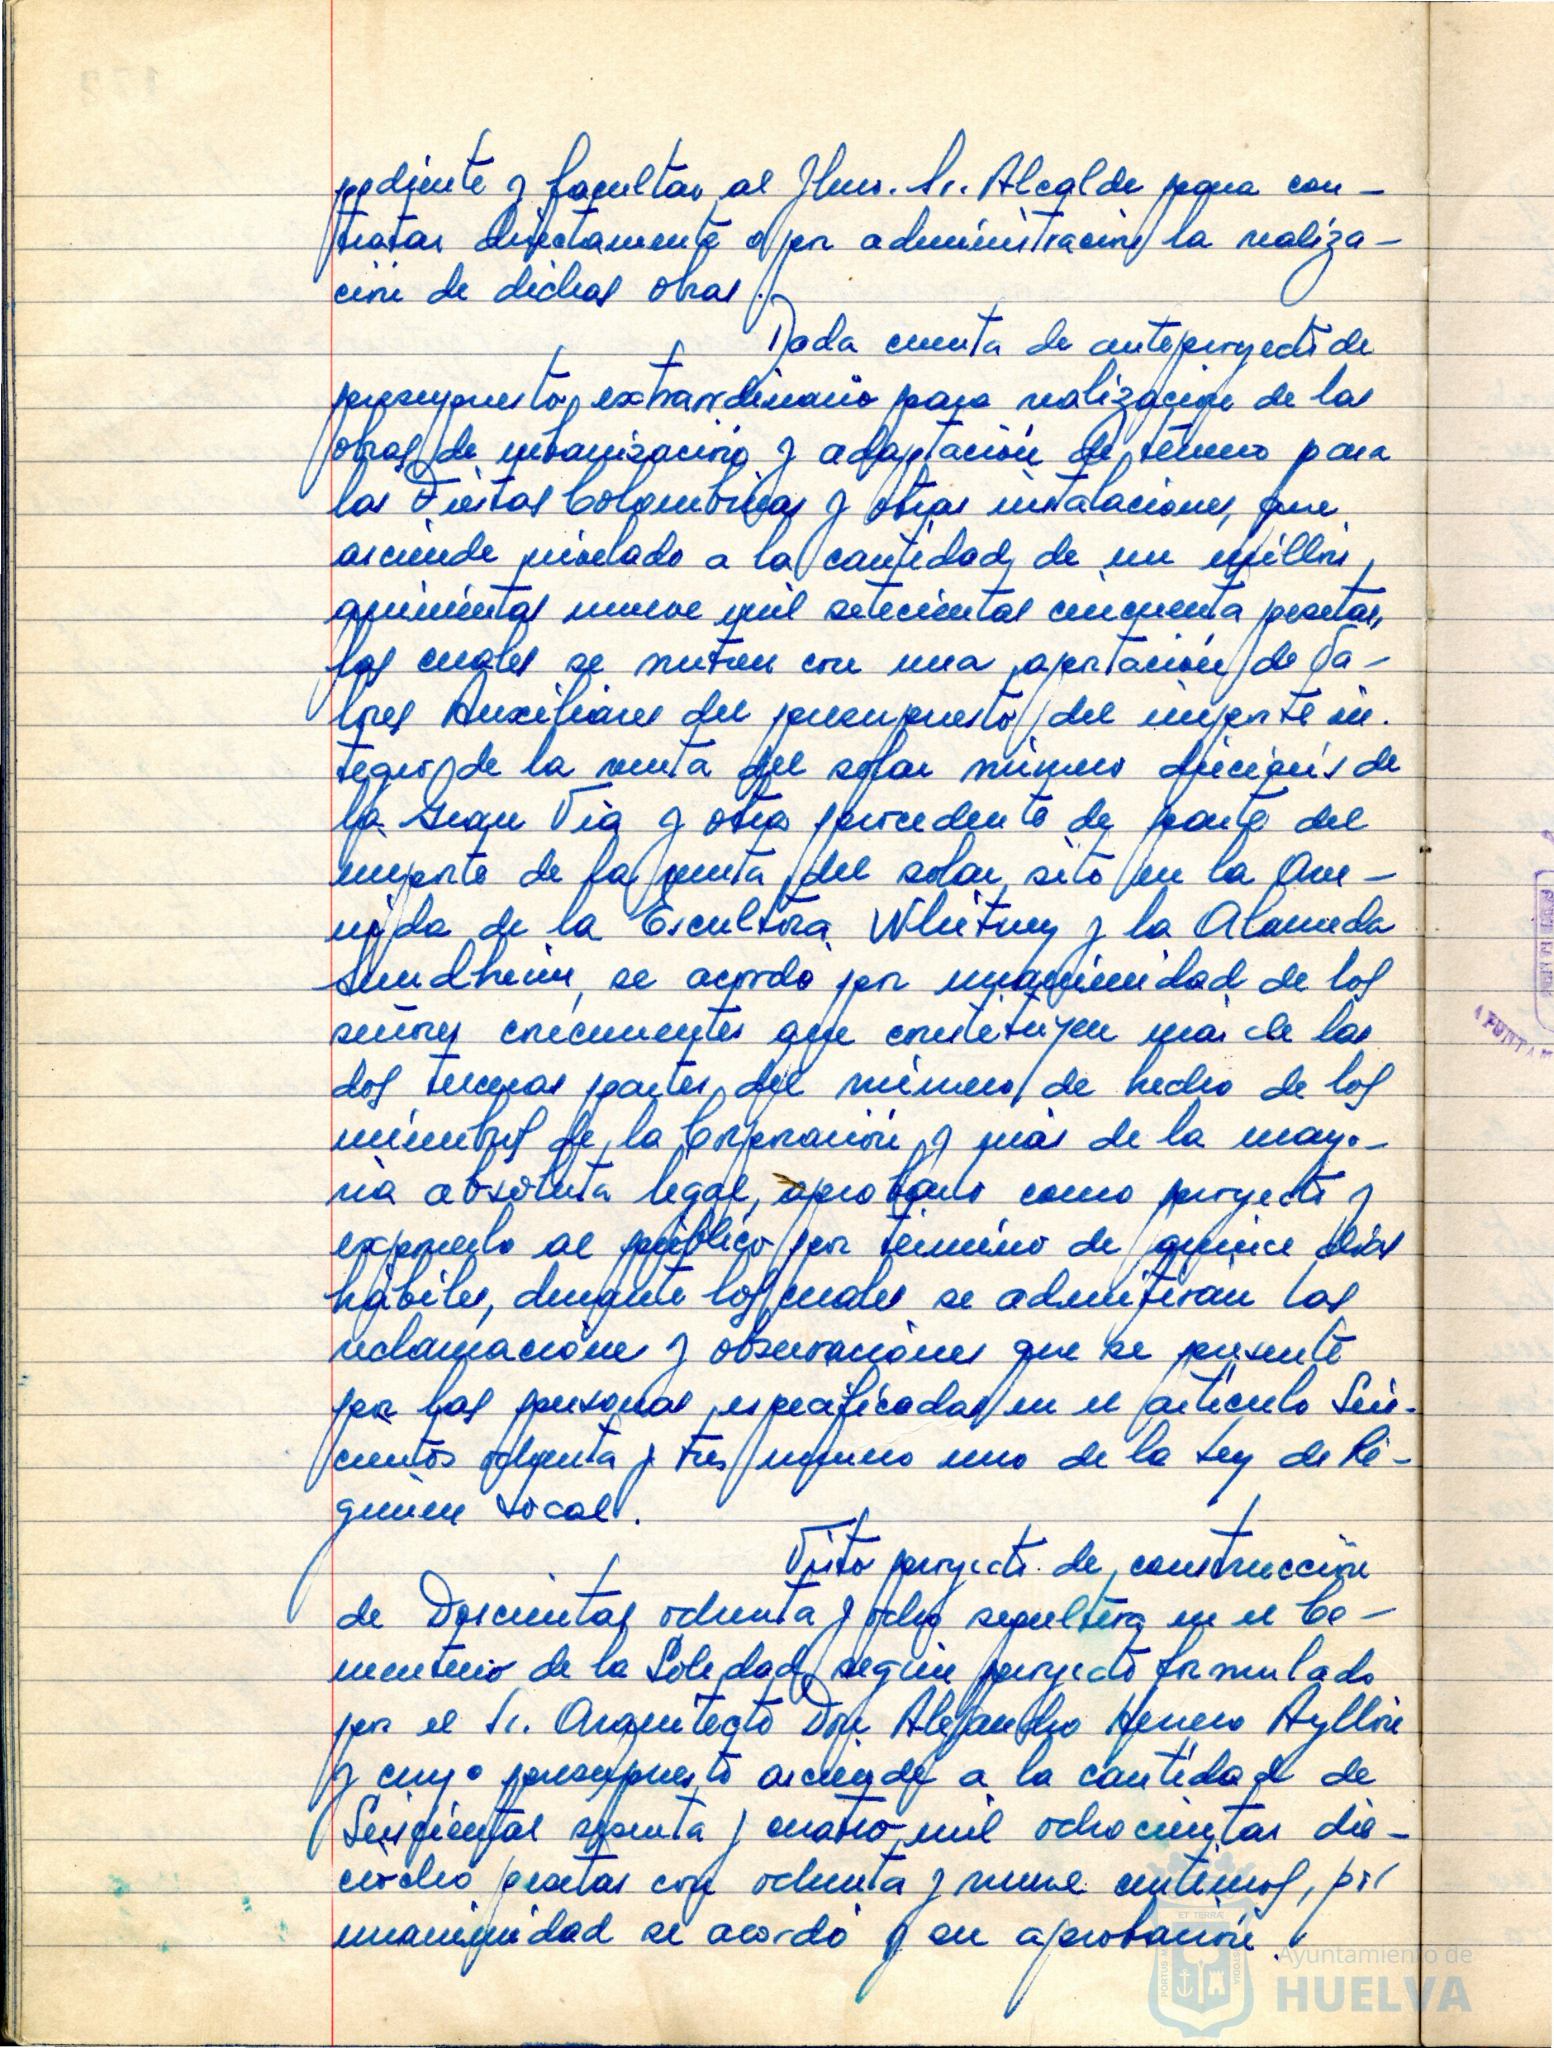 pediente y facultar al Ilmo. Sr. Alcalde para con-
tratar directamente o por administracion la realiza-
ción de dichas obras.
Dada cuenta de anteproyecto de
presupuesto extraordinario para realización de las
obras de urbanización y adaptación de terreno para
las Fiestas Colombinas y otras instalaciones, que
asciende nivelado a la cantidad de un millón,
quinientas nueve mil setecientas cincuenta pesetas,
las cuales se nutren con una aportación de Va-
lores Auxiliares del presupuesto del importe in-
tegro de la venta del solar número dieciseis de
la Gran Via y otra procedente de parte del
importe de la venta del solar sito en la Ave-
nida de la Escultora Whitney y la Alameda
Sundheim, se acordó por unanimidad de los
señores concurrentes que constituyen más de las
dos terceras partes del número de hecho de los
miembros de la Corporación y más de la mayo-
ria absoluta legal, aprobarlo como proyecto y
exponerlo al público por término de quince dias
hábiles, durante los cuales se admitirán las
reclamaciones y observaciones que se presente
por las personas especificadas en el artículo Seis-
cientos ochenta y tres número uno de la Ley de Ré-
gimen Local.
Visto proyecto de construcción
de Doscientas ochenta y ocho sepultura en el Ce-
menterio de la Soledad según proyecto formulado
por el Sr. Arquitecto Don Alejandro Herrero Ayllón
y cuyo presupuesto asciende a la cantidad de
Seiscientas sesenta y cuatro mil ochocientas die-
ciocho pesetas con ochenta y nueve centimos, por
unanimidad se acordó y su aprobación.
ET TERRAE
PORTUS MARIS
CUSTODIA
Ayuntamiento de
HUELVA